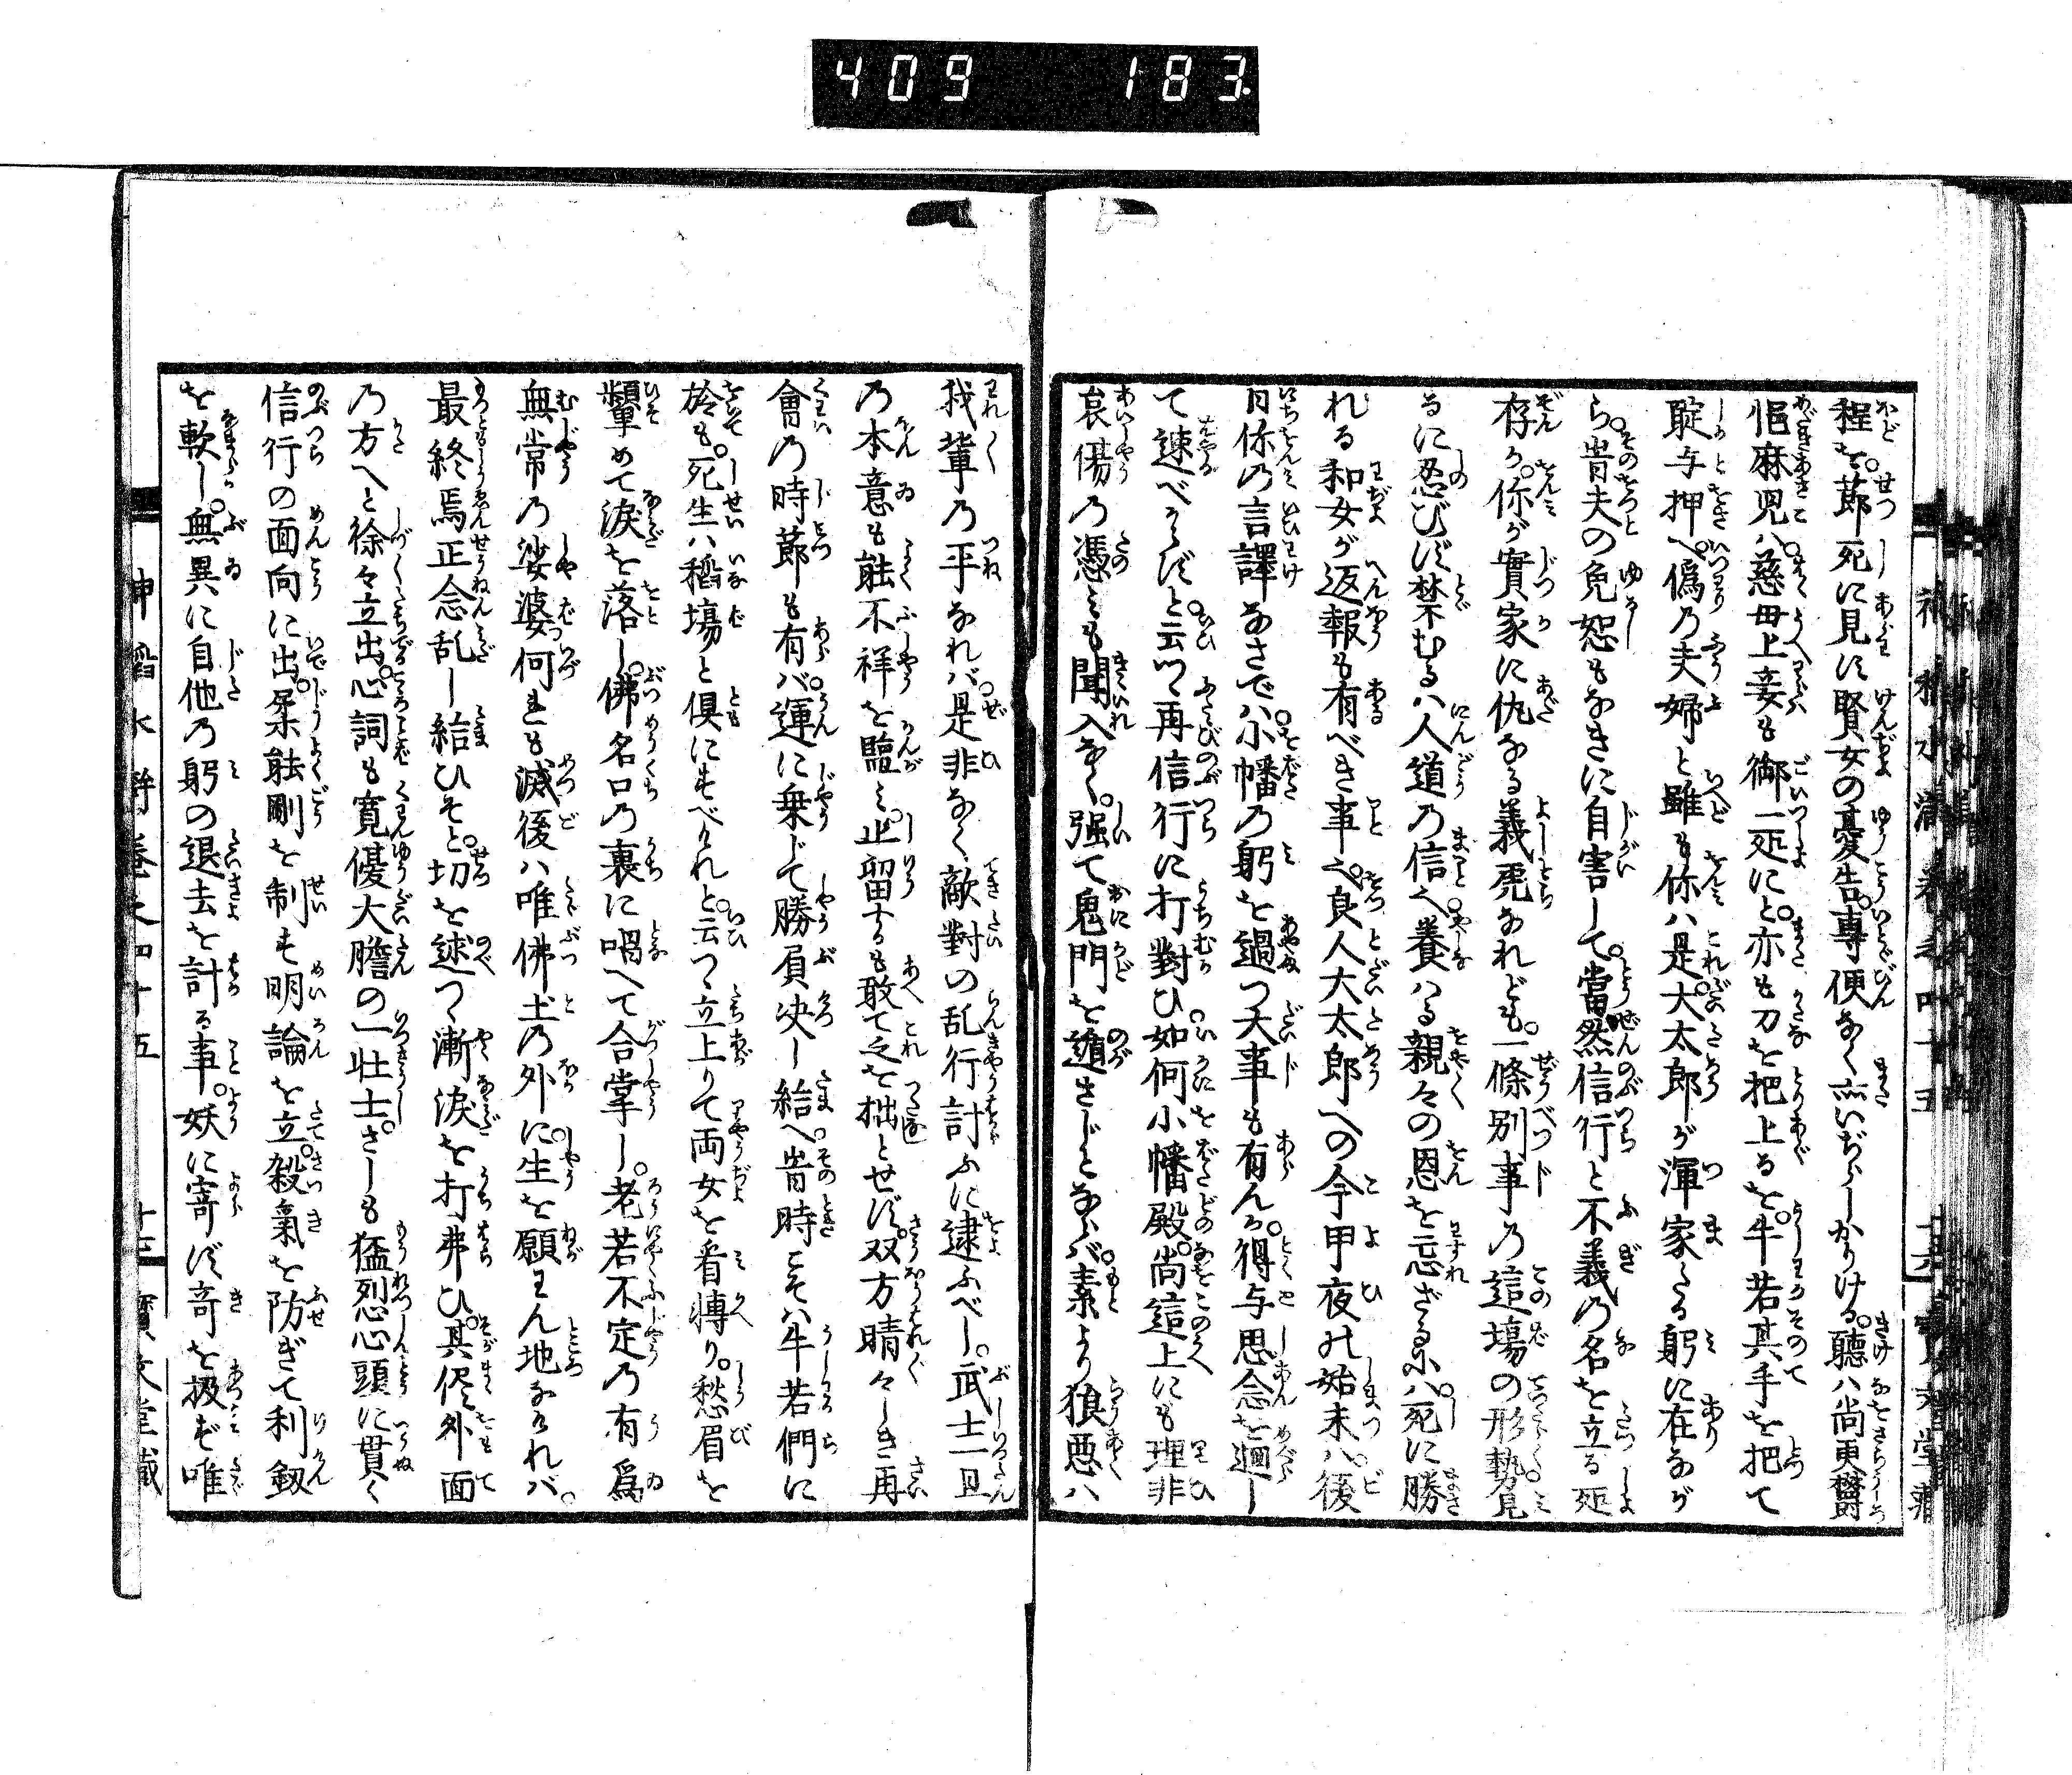 409 183
程を。節死に見に賢女の憂告。専便なく亦いぢらしかりける。聴ハ尚更欝
悒麻児ハ。慈母上妾も御一所にと。亦も刀を把上るを。牛若其手を把て
聢与押へ。偽乃夫婦と雖も你ハ是。大太郎が渾家たる躬に在なが
ら。肯夫の免恕もなきに自害して。當然信行と不義乃名を立る所
存か。你が實家に仇なる義虎なれども。一條別事乃這場の形勢見
るに忍びず禁むるハ人道乃信之。養ハる親々の恩を忘ざるハ。死に勝
れる和女が返報も有べき事之。良人大太郎への今甲夜の始末ハ。後
日你乃言譯なさでハ。小幡乃躬を過つ大事も有んか。得与思念を廻し
て速べからずと。云つゝ再信行に打對ひ。如何小幡殿。尚這上にも理非
哀傷乃憑ミも聞入なく。强て鬼門を遁さじとならバ。素より狼悪ハ
我輩乃平なれバ是非なく敵對の乱行計ふに逮ふべし。武士一旦
乃本意も能不祥を鑒ミ。止留するも敢て之を拙とせず。双方晴々しき再
會乃時節も有バ。運に乗じて勝負決し給へ。當時こそハ牛若們に
於も。死生ハ稻場と俱にすべけれと。云つゝ立上りて両女を看轉り。愁眉を
顰めて淚を落し。佛名口乃裏に唱へて合掌し。老若不定乃有為
無常乃娑婆何れも滅後ハ唯佛土乃外に。生を願わん地なければ。
最終焉正念乱し給ひそと。切を述つゝ漸淚を打拂ひ。其侭外面
乃方へと徐々立出。心詞も寛優大膽の一壮士。さしも猛烈心頭に貫く
信行の面向に出。柔能剛を制す明論を立。殺氣を防ぎて利劔
を軟し。無異に自他乃躬の退去を計る事。妖に寄ず竒を扱ず唯
神稻水滸傳巻之四十五 十三 寳文堂藏